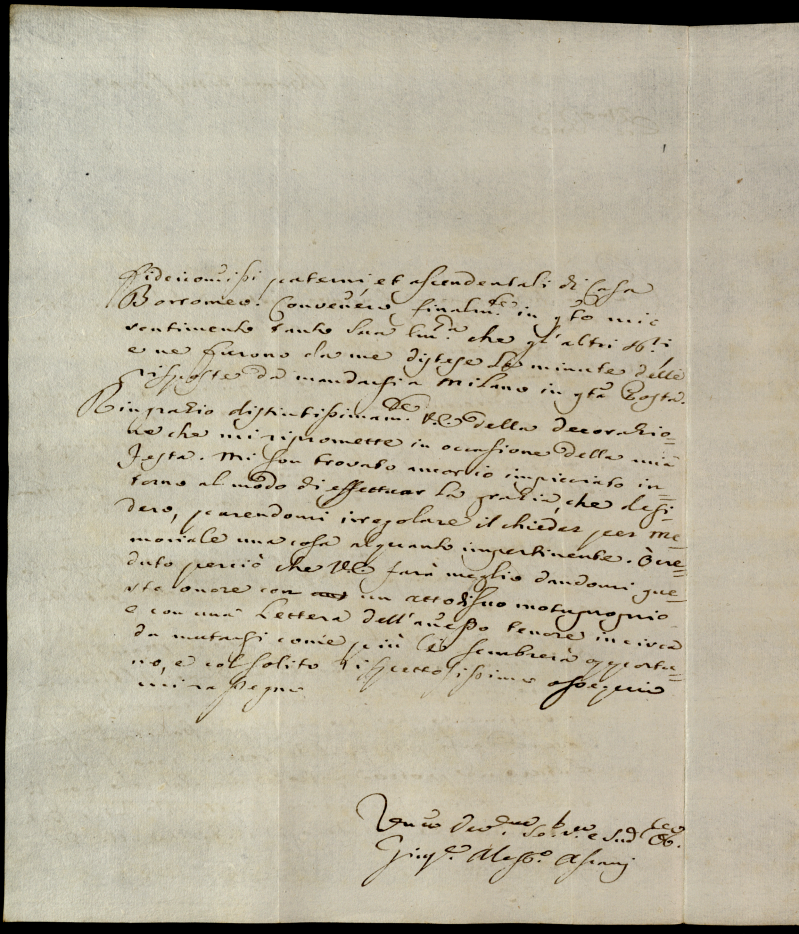 Fideicomissi paterni, et ascendentali di Casa
Borromeo. Convenero finalm.te in q.to mio
sentimento tanto Sua che gl'altri
e ne furono da me distese le minute delle
risposte da mandarsi a Milano in q.ta Posta.
Ringrazio distintissimam.te V.E. della decorazio=
ne che mi ripromette in occasione della mia
festa. Mi son trovato ancor io impicciato in=
torno al modo di effettuar la grazia, che desi=
dero, parendomi irregolare il chieder per me=
moriale una cosa alquanto impertinente. Ò cre=
duto perciò che V.E. farà meglio dandomi que=
sto onore con un atto di suo motuproprio
e con una Lettera dell'annesso tenore in circa
da mutarsi come più le sembrerà opportu=
no, e col solito rispettosissimo ossequio
mi rassegno
Giu.e Aless.o